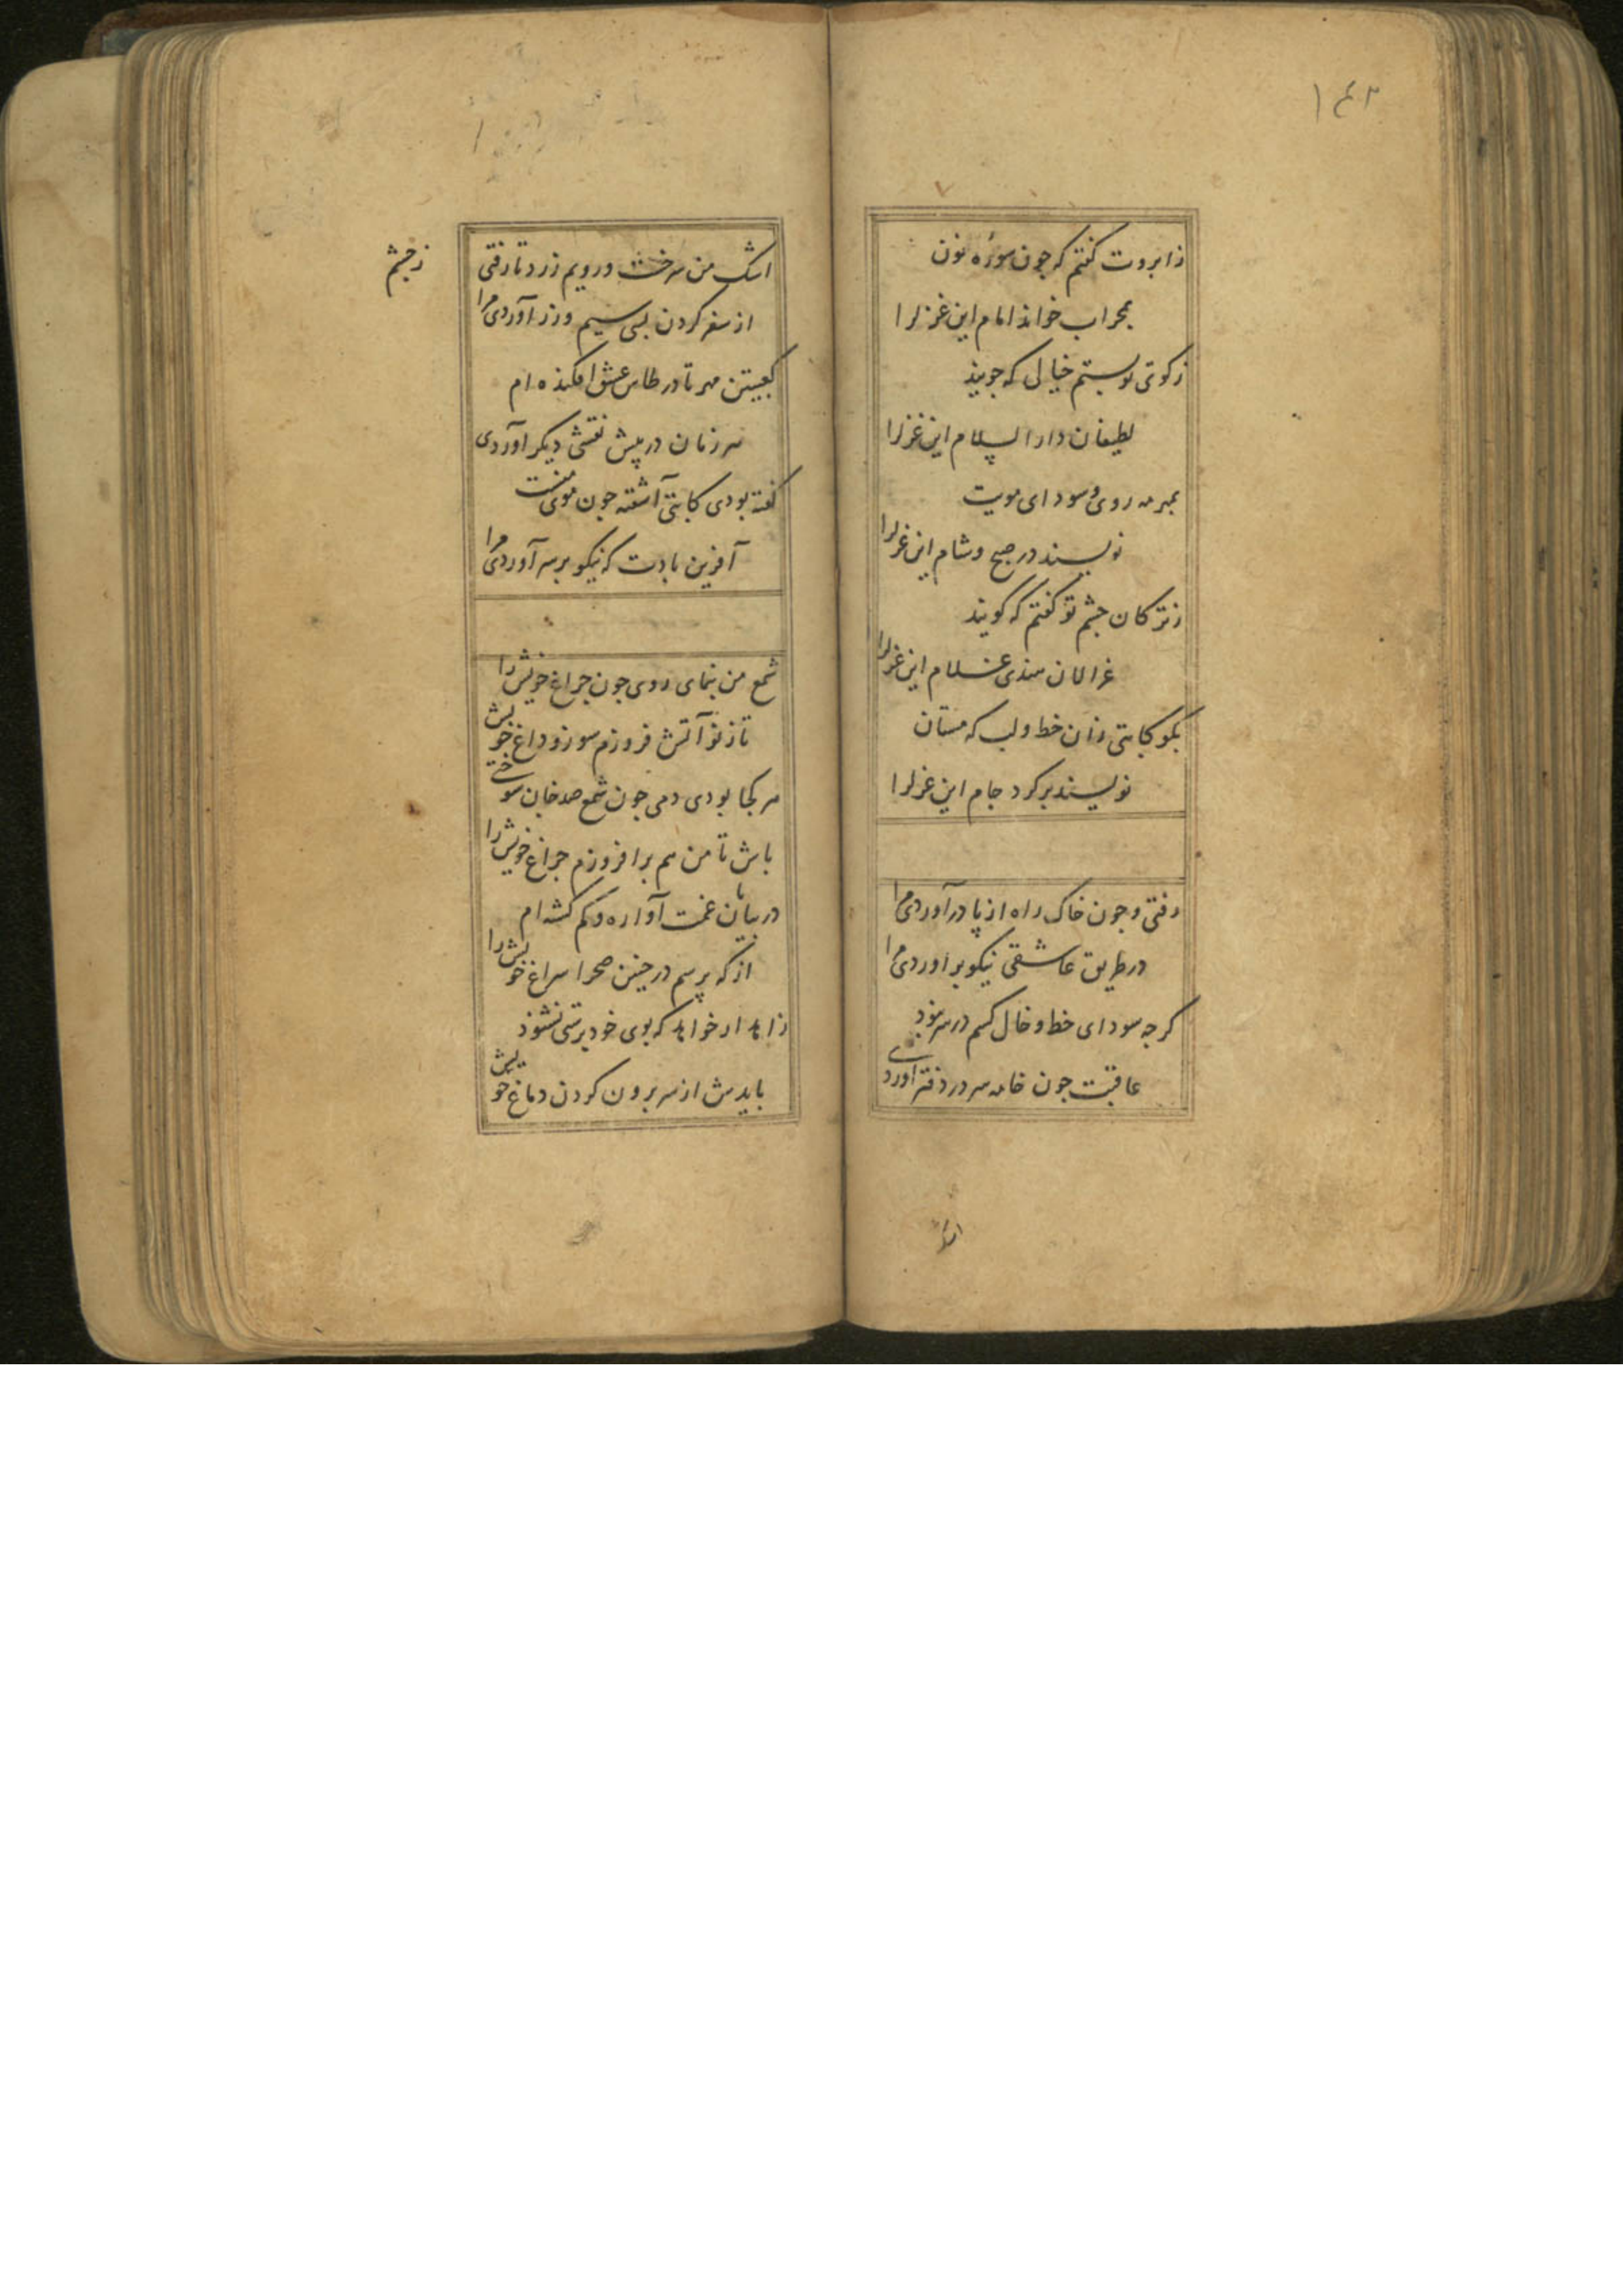 ۱۴۲
زابروت گفتم که جون سورهٔ نون
بمحراب خواند امام این غزلرا
زکوی تو بستم خیالی که جویند
لطیفان دار السلام این غزلرا
بمهر مه روی و سودای مویت
نویسند در صبح و شام این غزلرا
زترکان جشم تو گفتم که گویند
غزالان هندی غلام این غزلرا
بگو کاتبی زان خط و لب که مستان
نویسند بر کرد جام این غزلرا
رفتی و جون خاک راه از پا درآوردی مرا
در طریق عاشقی نیکو برآوردی مرا
کرجه سودای خط و خال کسم در سر نبود
عاقبت جون خامه سر در دفتر آوردی
اشک من سرخست و رویم زرد تا رفتی زجشم
از سفر کردن بسی سیم و زر آوردی مرا
کعبتین مهر تا در طاس عشق افکنده ام
هر زمان در پیش نقشی دیکر آوردی
گفته بودی کاتبی آشفته جون موی منست
آفرین بادت که نیکو بر سر آوردی مرا
شمع من بنمای روی جون جراغ خویش را
تا زنو آتش فروزم سوز و داغ خویش
هر کجا بودی دمی جون شمع صد جان سوختی
باش تا من هم برافروزم جراغ خویش را
در بیابان غمت آواره و کم کشته ام
از که پرسم در جنین صحرا سراغ خویش را
زاهد ار خواهد که بوی خود پرستی نشنود
بایدش از سر برون کردن دماغ خویش